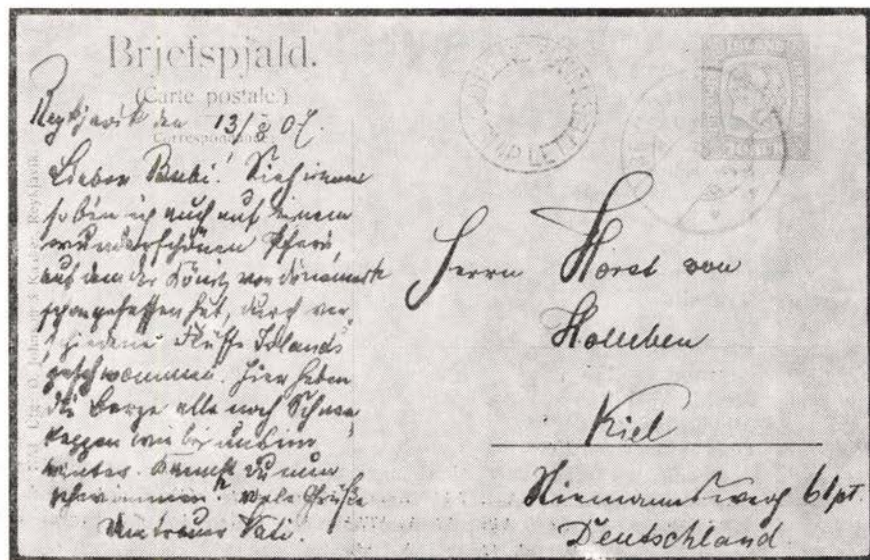 Brjefspjald.
(Carte postale.)
Reykjavik den 13/8 07.
Correspondance.
Lieber Bubi!
so bin ich auch auf einem
wunderschönen Pferd
auf dem der König von Dänemark
schon gesessen hat, durch ver-
schiedene Flüsse Islands
geschwommen. Hier haben
die Berge alle noch Schnee
kappen wie bei uns im
Winter. Kannst du nun
schwimmen? viele Grüße
Vati.
Herrn Horst von
Holleben
Kiel
Deutschland
ISLAND